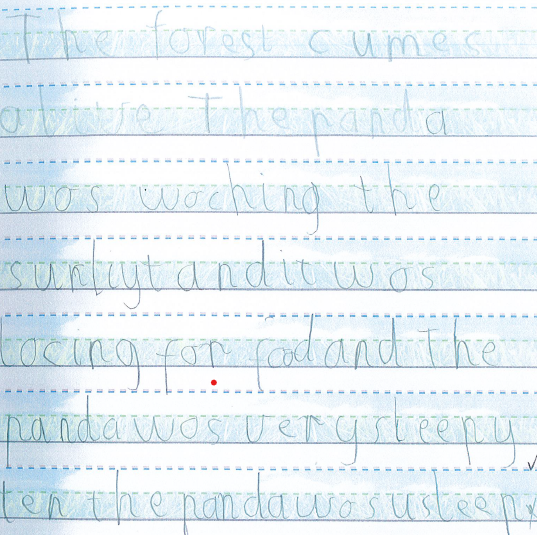 The forest cumes
alive The panda
wos woching the
sunliyt and it wos
locing for food and The
panda wos very sleepy
ten the panda wos usleep